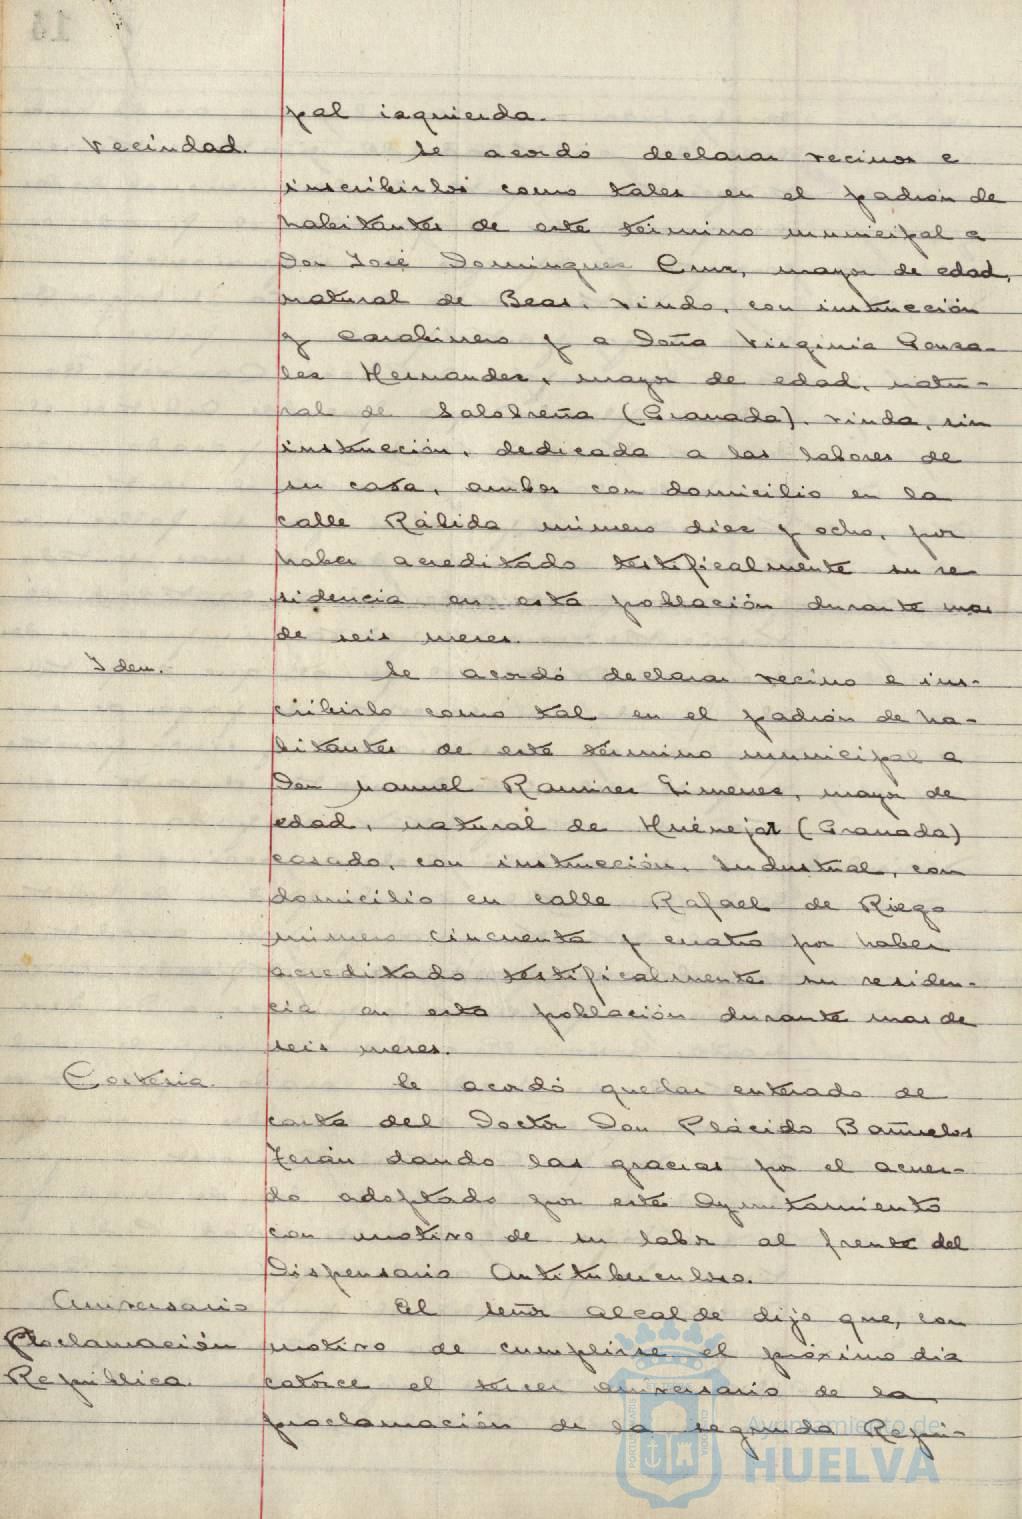 pal izquierda.
Vecindad.
Se acordó declarar vecinos e
inscribirlos como tales en el padrón de
habitantes de este término municipal a
Don José Domínguez Cruz, mayor de edad,
natural de Beas, viudo, con instrucción
y carabinero y a Doña Virginia Gonza-
lez Hernandez, mayor de edad, natu-
ral de Salobreña (Granada), viuda, sin
instrucción, dedicada a las labores de
su casa, ambos con domicilio en la
calle Rábida número diez y ocho, por
haber acreditado testificalmente su re-
sidencia en esta población durante mas
de seis meses.
Idem.
Se acordó declarar vecino e ins-
cribirlo como tal en el padrón de ha-
bitantes de este término municipal a
Don Manuel Ramirez Gimenez, mayor de
edad, natural de Huéneja (Granada)
casado, con instrucción, Industrial, con
domicilio en calle Rafael de Riego
número cincuenta y cuatro por haber
acreditado testificalmente su residen-
cia en esta población durante mas de
seis meses.
Cortesia.
Se acordó quedar enterado de
carta del Doctor Don Plácido Bañuelos
Terán dando las gracias por el acuer-
do adoptado por este Ayuntamiento
con motivo de su labor al frente del
Dispensario Antituberculoso.
Aniversario
Proclamación
República.
El señor Alcalde dijo que, con
motivo de cumplirse el próximo dia
catorce el tercer aniversario de la
proclamación de la segunda Repú-
Ayuntamiento de
HUELVA